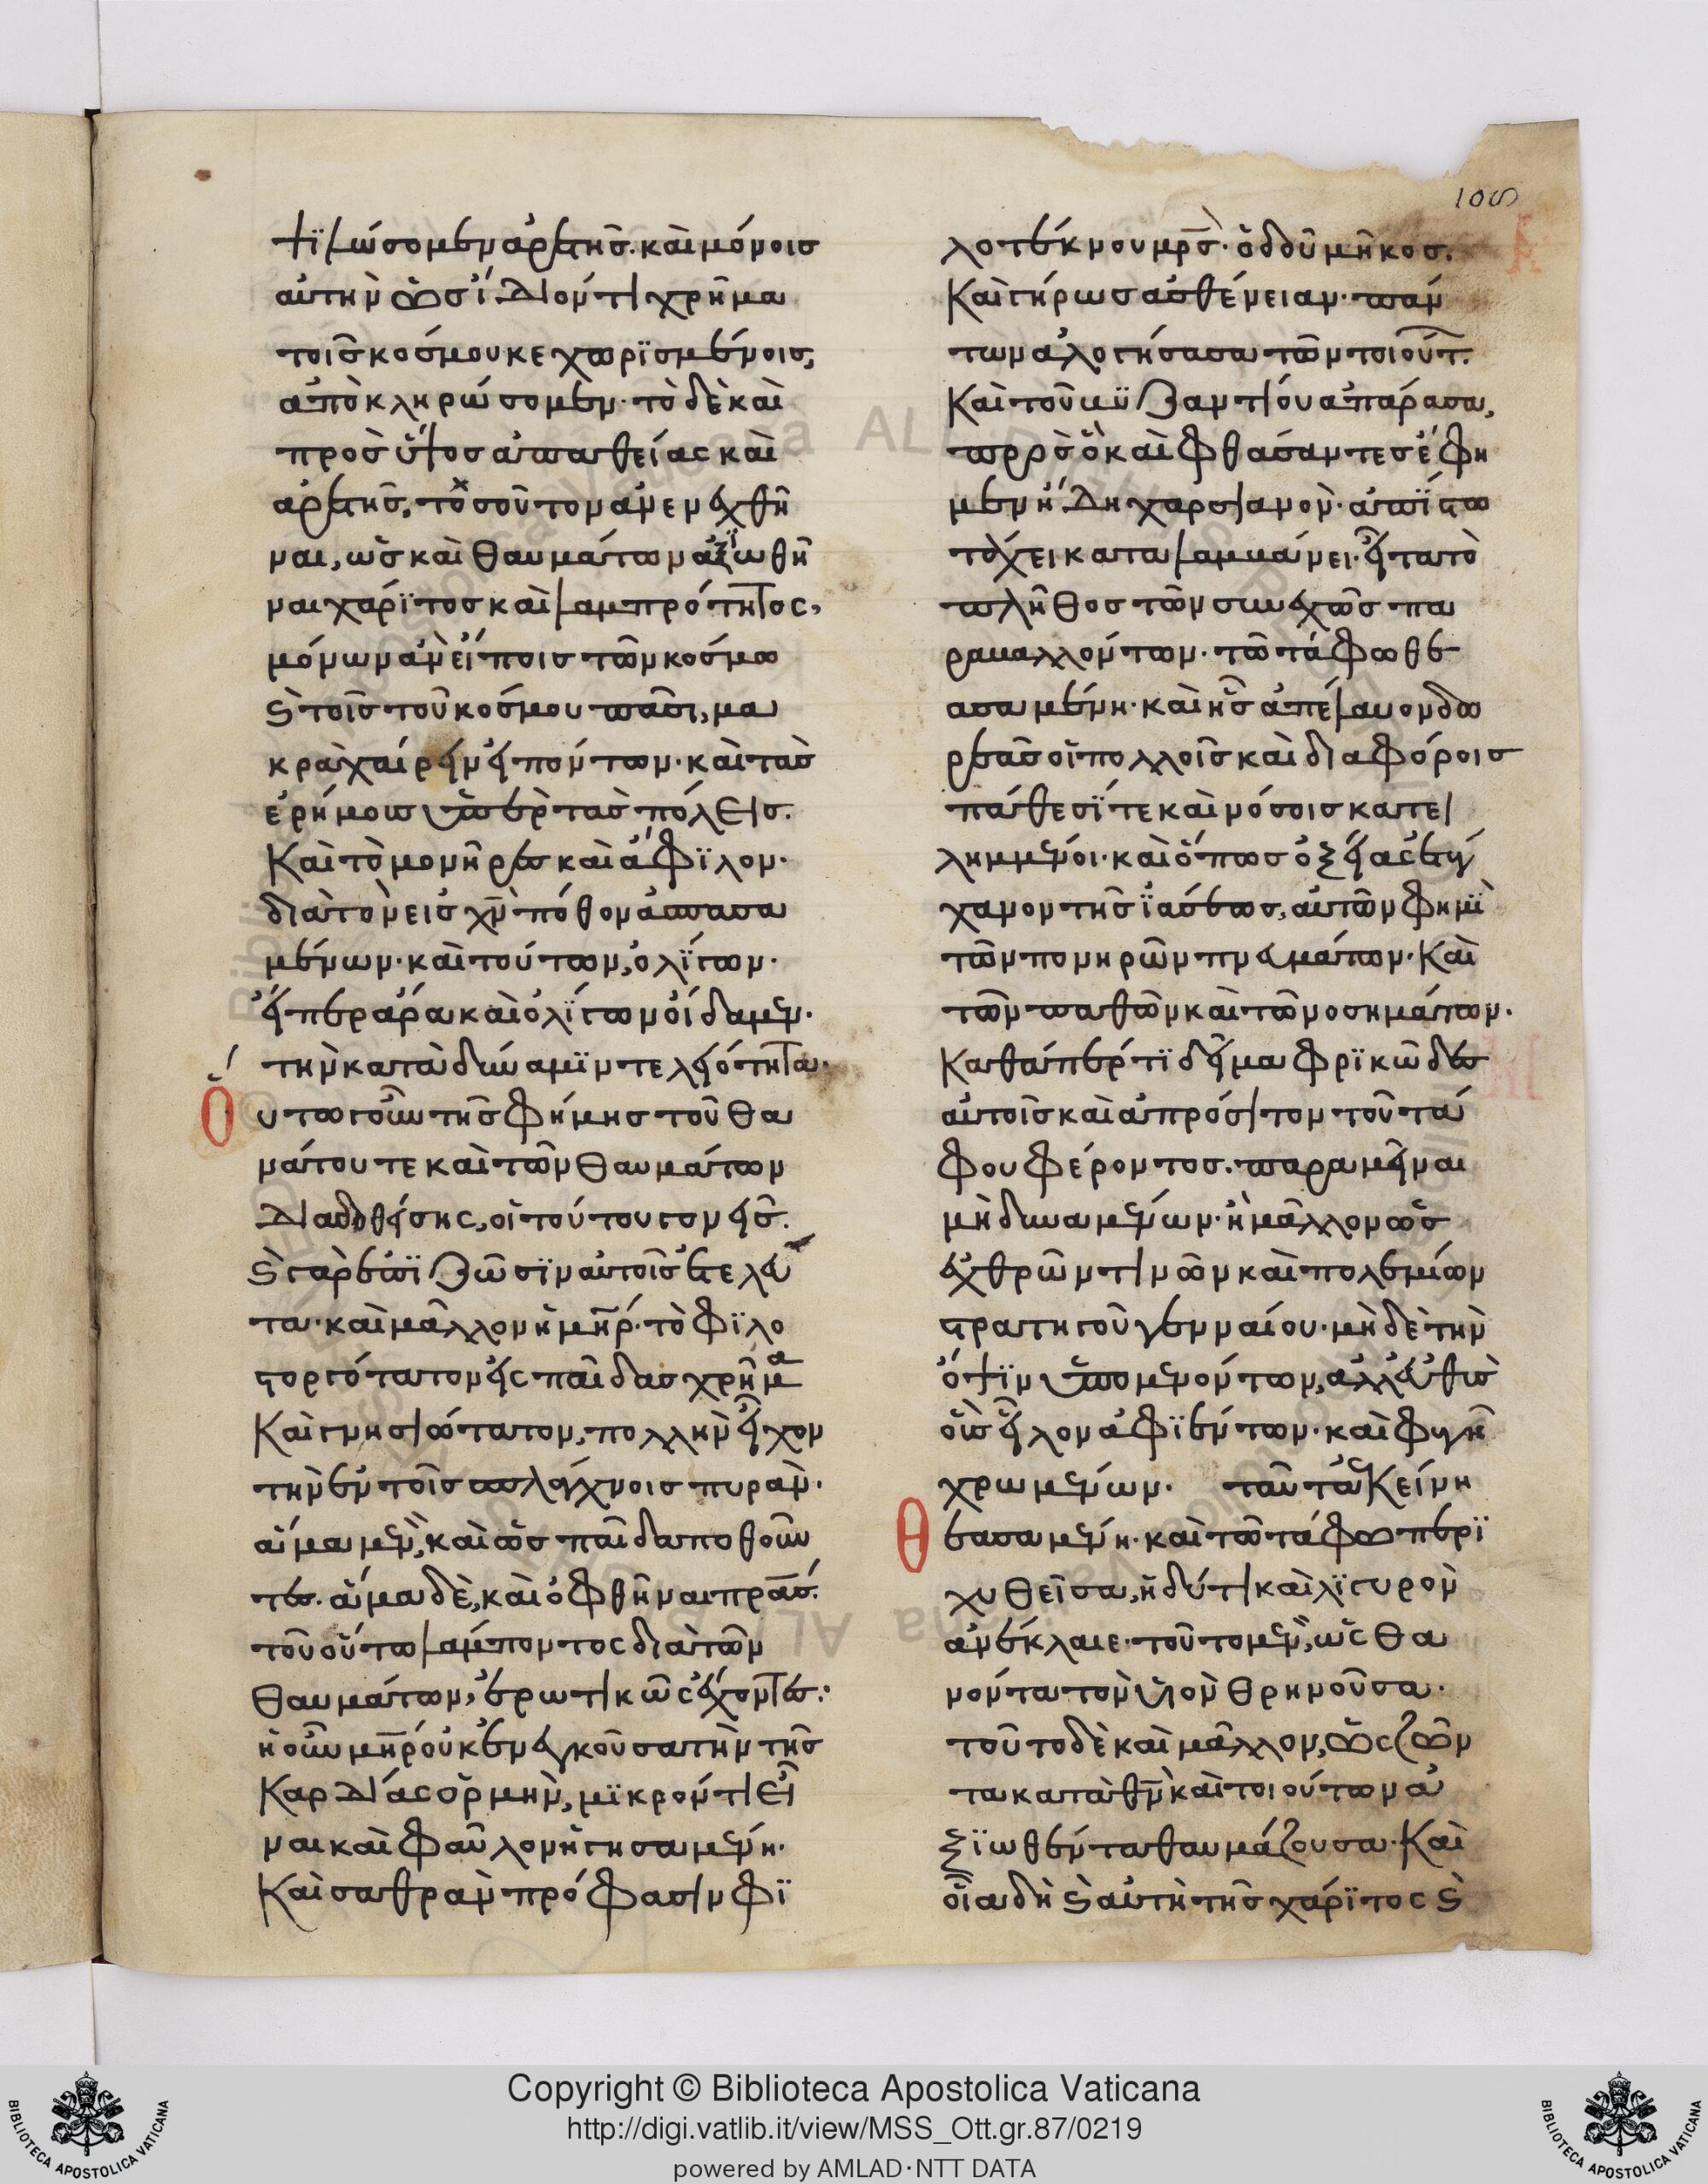 108
ψιλώσομεν ἀρετῆς· καὶ μόνοις
αὐτὴν ὡς ἴδιόν τι χρῆμα
τοῖς κόσμου κεχωρϊσμένοις,
ἀποκληρώσομεν· τὸ δὲ καὶ
πρὸς ὕψος ἀπαθείας καὶ
ἀρετῆς, τοσοῦτον ἀνενεχθῆ
ναι, ὡς καὶ θαυμάτων ἀξϊωθῆ
ναι χάρϊτος καὶ λαμπρότητος,
μόνων ἂν εἴποις τῶν κόσμω
καὶ τοῖς τοῦ κόσμου πᾶσι, μα
κρὰ χαίρειν εἰπόντων· καὶ τὰς
ἐρήμους ὑπὲρ τὰς πόλεις·
Καὶ τὸ μονῆρες καὶ ἄφϊλον·
διὰ τὸν εἰς χν πόθον ἀσπασα
μένων· καὶ τούτων, ὀλίγων·
εἴπερ ἄρα καὶ ὀλίγων οἴδαμεν·
τὴν κατὰ δύναμϊν τελειότητα·
Οὕτω γοῦν τῆς φήμης τοῦ θα
νάτου τε καὶ τῶν θαυμάτων
διαδοθείσης, οἱ τούτου γονεῖς·
καὶ γὰρ ἐπϊβιῶσϊν αὐτοῖς ἐτελεύ
τα· καὶ μᾶλλον ἡ μηρ· τὸ φϊλο
στοργότατον εἰς παῖδας χρῆμα
Καὶ γνησιώτατον, πολλὴν εἶχον
τὴν ἐν τοῖς σπλάγχνοις πυράν·
ἅμα μὲν, καὶ ὡς παῖδα ποθοῦν
τες· ἅμα δὲ, καὶ ὀφθῆναι πρὸς
τοῦ οὕτω λάμποντος διὰ τῶν
θαυμάτων, ἐρωτικῶς ἔχοντες·
ἡ οὖν μηρ οὐκ ἐνεγκοῦσα τὴν τῆς
Καρδίας ὁρμὴν, μϊκρόν τι εἶ
ναι καὶ φαῦλον ἡγησαμένη·
Καὶ σαθρὰν πρόφασιν φϊ
λοτέκνου μρς· ὁδοῦ μῆκος·
Καὶ γήρως ἀσθένειαν· πάν
των ἀλογήσασα τῶν τοιούτ·
Καὶ τοῦ κυ Βϊζαντίου ἀπάρασα,
πρὸς ὃ καὶ φθάσαντες ἔφη
μεν ἤδη χαρσιανὸν· ἀπίστω
τάχει καταλαμβάνει· εἶτα τὸ
πλῆθος τῶν συνεχῶς πα
ραβαλλόντων· τῶ τάφω θε
ασαμένη· καὶ ἧς ἀπέλαυον δω
ρεᾶς οἱ πολλοῖς καὶ διαφόροις
πάθεσϊ τε καὶ νόσοις κατει
λημμένοι· καὶ ὅπως ὀξείας ἐτύγ
χανον τῆς ἰάσεως, αὐτῶν φημὶ
τῶν πονηρῶν πνευμάτων· Καὶ
τῶν παθῶν καὶ τῶν νοσημάτων·
Καθάπερ τϊ δεῖμα φρϊκῶδες
αὐτοῖς καὶ ἀπρόσιτον τοῦ τά
φου φέροντος· παραμεῖναι
μὴ δυναμένων· ἢ μᾶλλον ὡς
ἐχθρῶν τινῶν καὶ πολεμίων
στρατηγοῦ γενναίου· μὴ δὲ τὴν
ὄψϊν ὑπομενόντων, ἀλλ' εὐθὺς
οὓς εἷλον ἀφϊέντων· καὶ φυγῆ
χρωμένων· ταῦτα ἐκείνη
Θεασαμένη· καὶ τῶ τάφω περϊ
χυθεῖσα, ἡδύ τι καὶ λϊγυρὸν
ἀνέκλαιε· τοῦτο μὲν, ὡς θα
νόντα τὸν υἱὸν θρηνοῦσα·
τοῦτο δὲ καὶ μᾶλλον, ὡς ζῶν
τα κατὰ θν καὶ τοιούτων ἀ
ξϊωθέντα θαυμάζουσα· Καὶ
οἷα δὴ καὶ αὐτὴ τῆς χάρϊτος καὶ
Copyright © Biblioteca Apostolica Vaticana
http://digi.vatlib.it/view/MSS_Ott.gr.87/0219
powered by AMLAD·NTT DATA
BIBLIOTECA APOSTOLICA VATICANA
BIBLIOTECA APOSTOLICA VATICANA